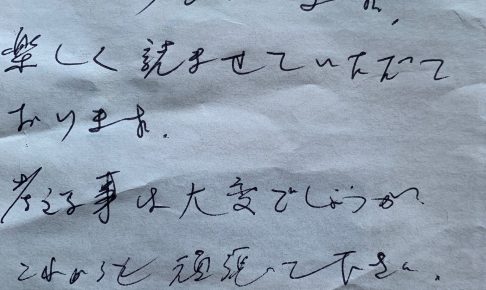 ます。
楽しく読ませていただいて
おります。
考える事は大変でしょうが
これからも頑張って下さい。